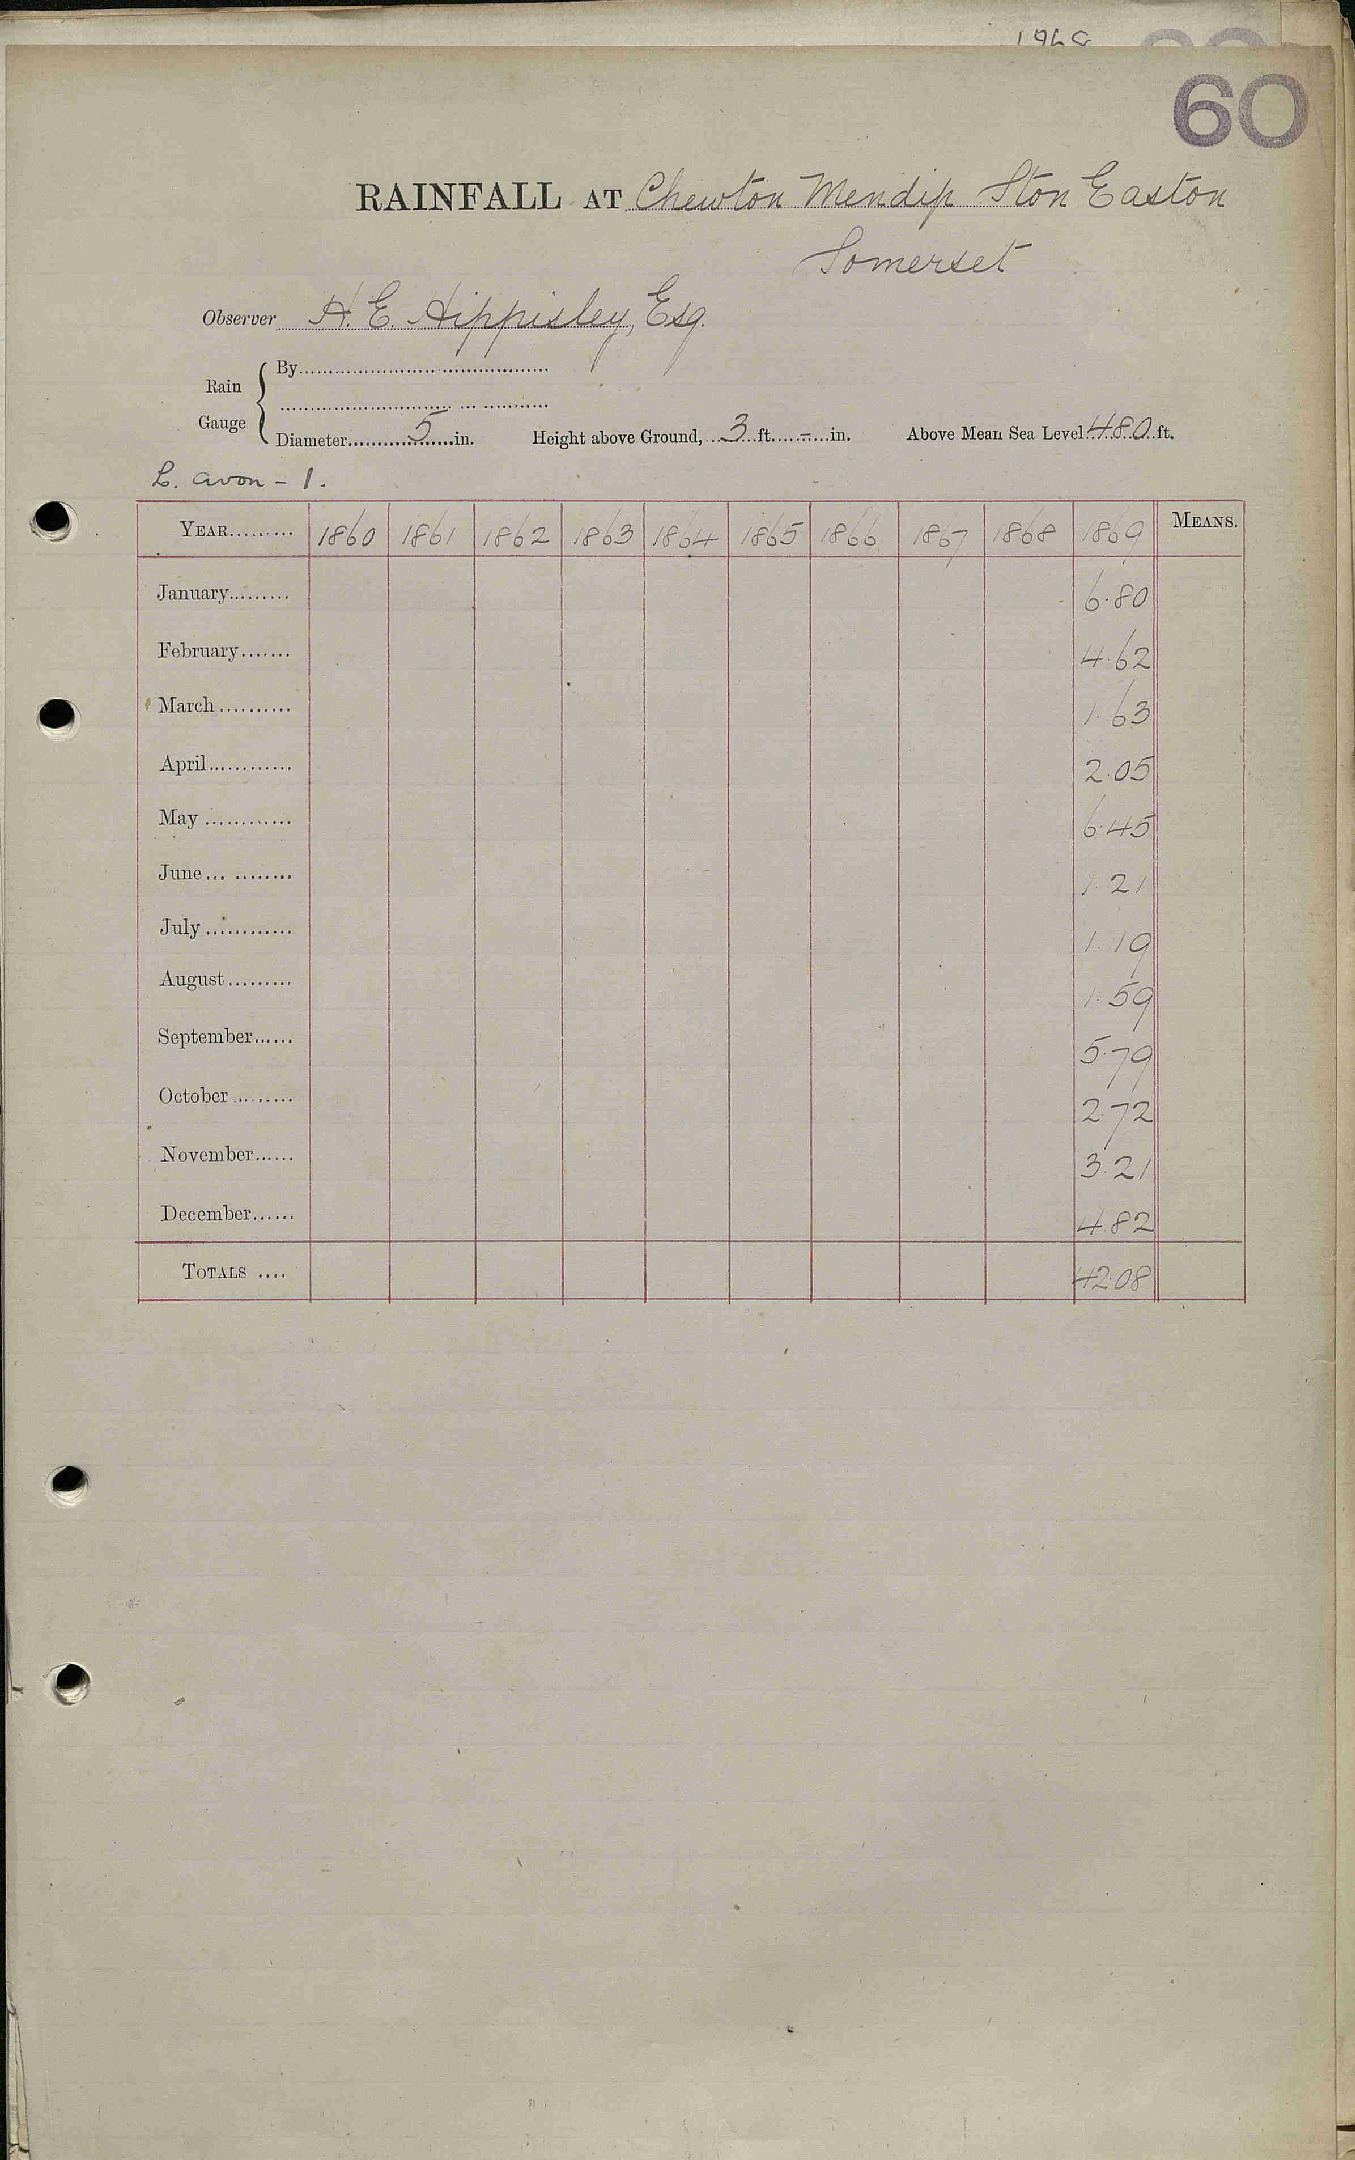 60
RAINFALL AT Chewton Mendip Ston Easton
Somerset
Observer H. E. Hippisley, Esq.
Rain Gauge
By
Diameter 5 in. Height above Ground, 3 ft. - in. Above Mean Sea Level 480 ft.
L. Avon - 1.
YEAR 1860 1861 1862 1863 1864 1865 1866 1867 1868 1869 MEANS.
January 6.80
February 4.62
March 1.63
April 2.05
May 6.45
June 1.21
July 1.19
August 1.59
September 5.79
October 2.72
November 3.21
December 4.82
TOTALS 42.08